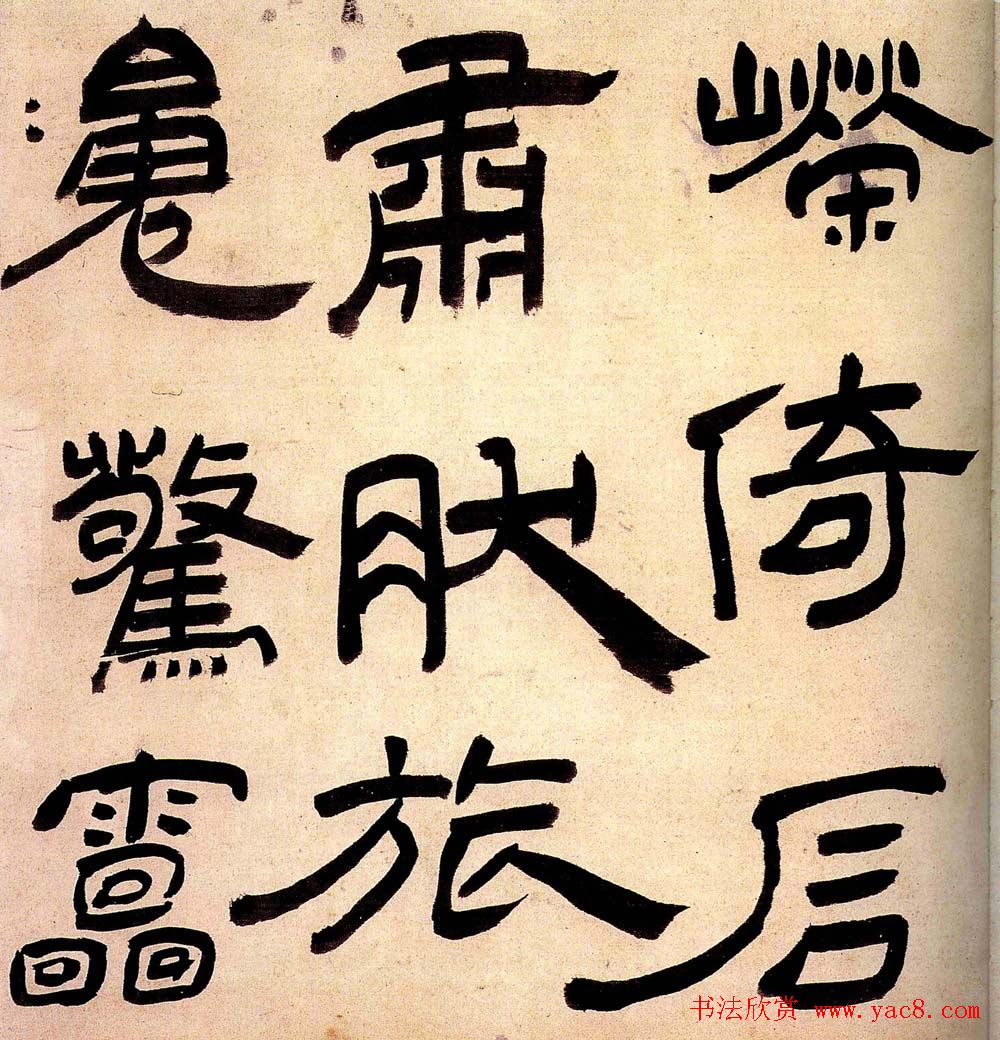 嶸倚
肅肰旅
驚靁
书法欣赏 www.yac8.com